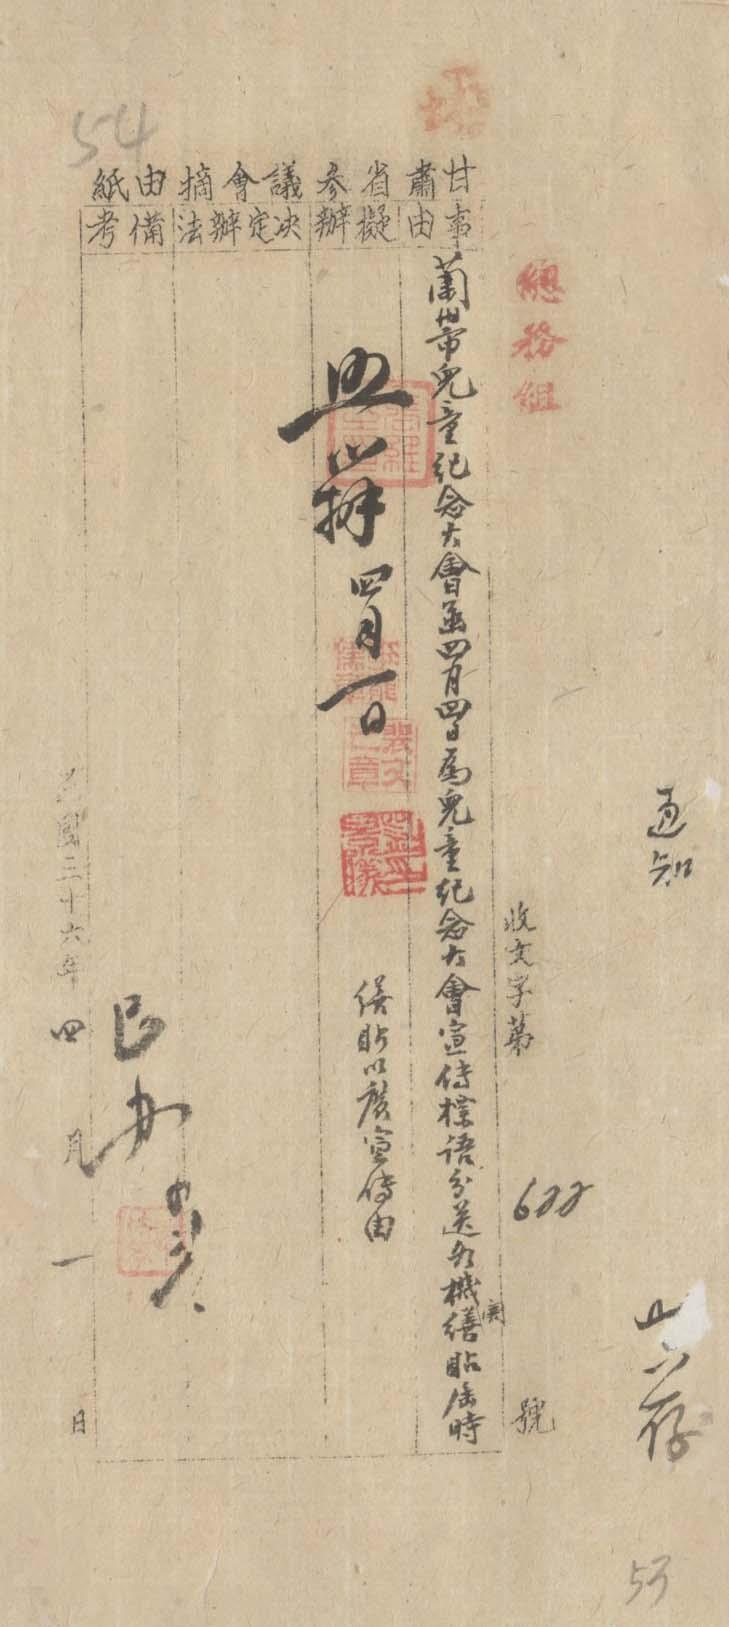 54
甘肅省參議會摘由紙
事由
擬辦
決定辦法
備考
通知
止存
總務組
收文字第 622 號
蘭州市兒童紀念大會函四月四日為兒童紀念大會宣傳標語分送各機關繕貼屆時
繕貼以廣宣傳由
照辦 四月一日
已辦
民國三十六年四月一日
53